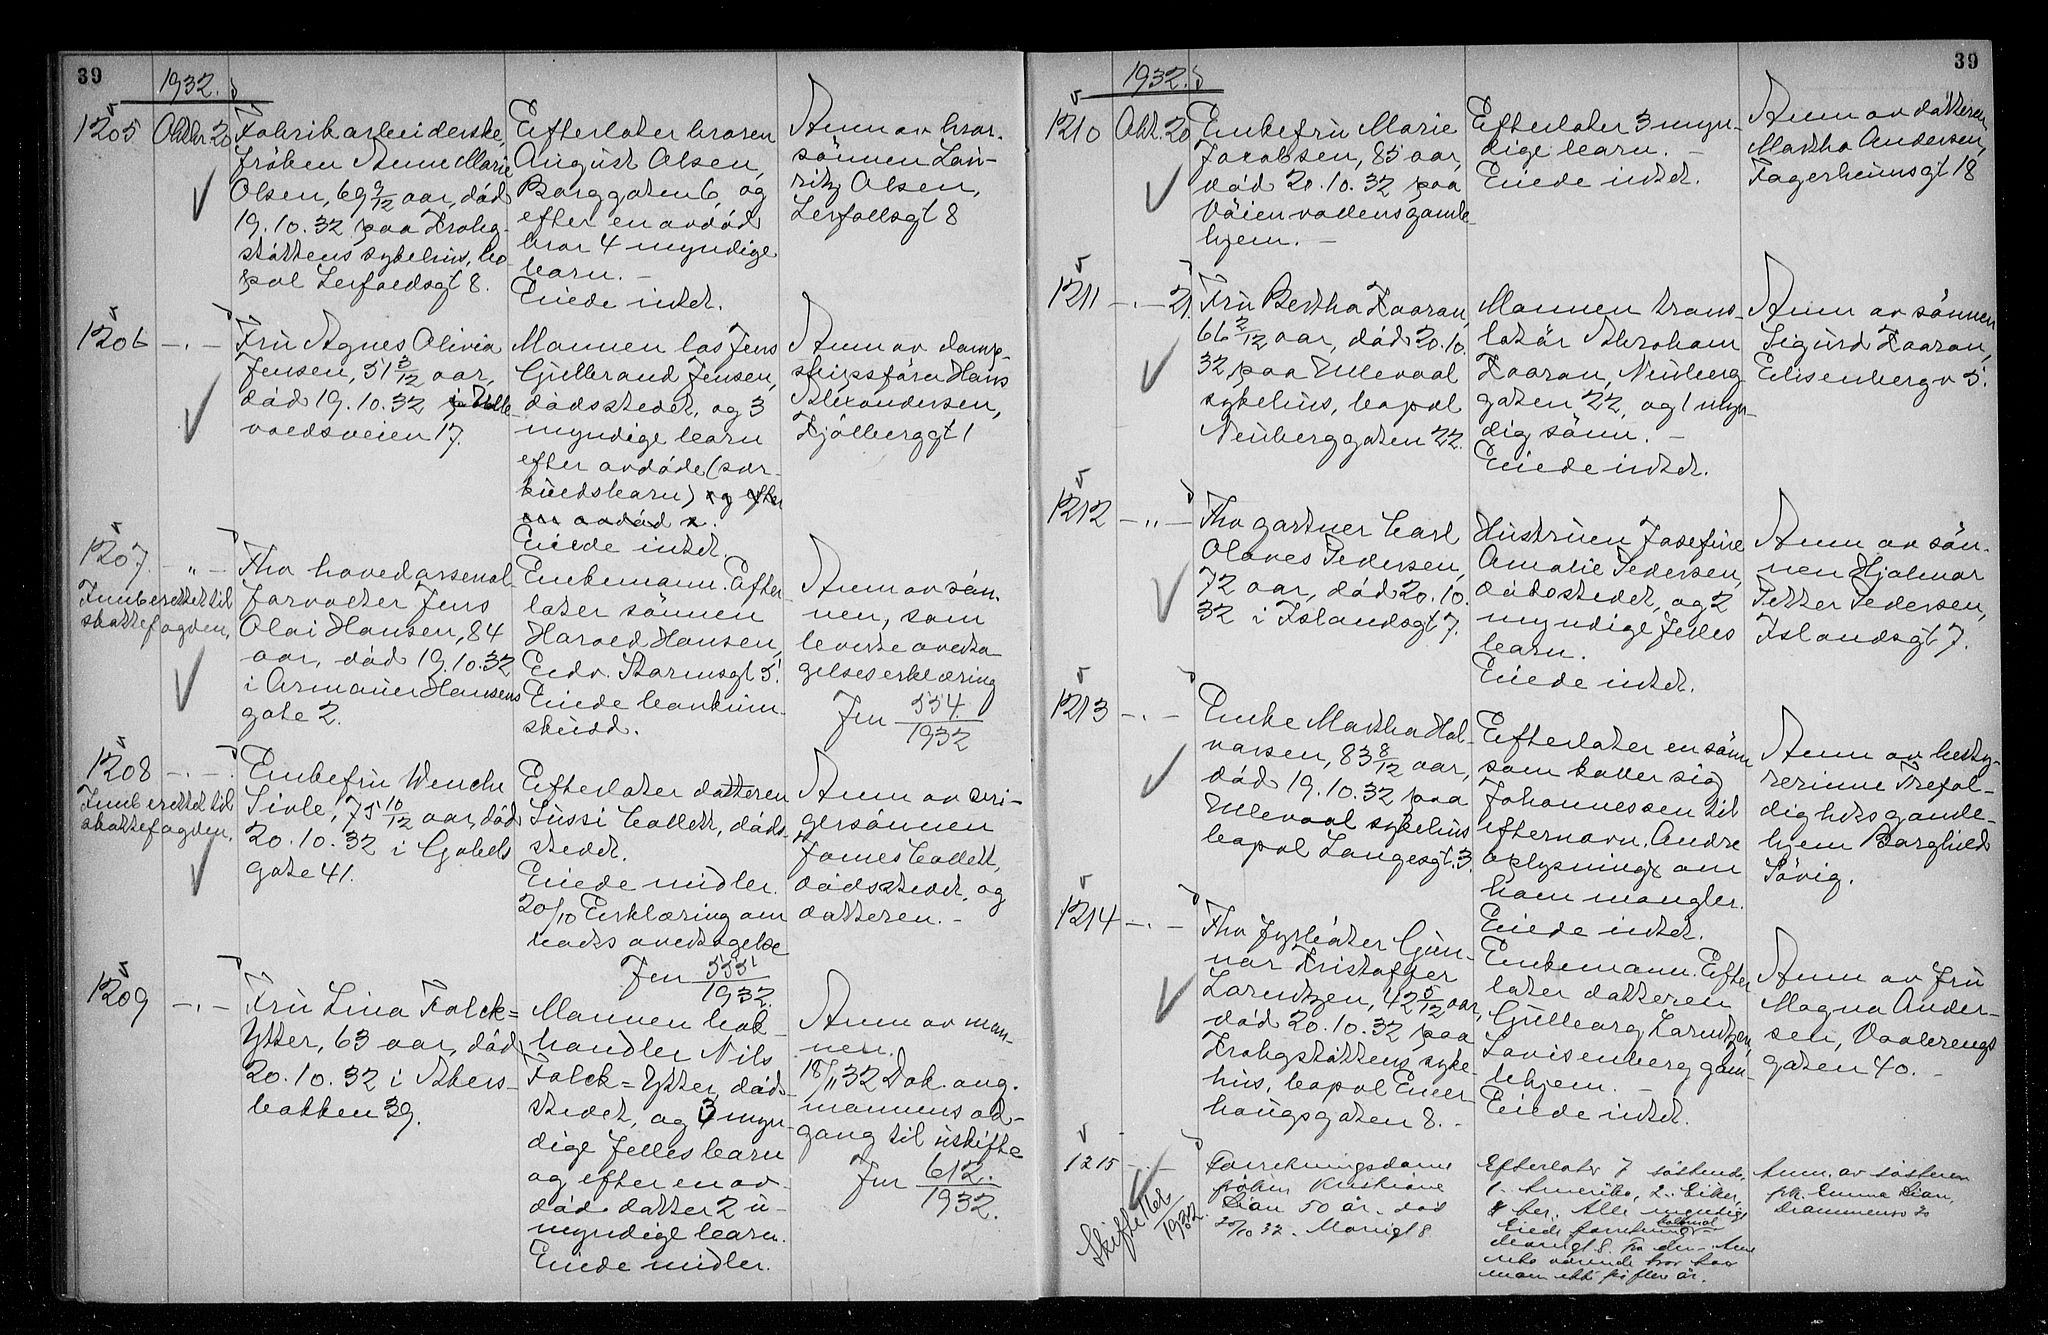 39
1932.
1205
Oktbr. 20
Fabrikarbeiderske,
frøken Anne Marie
Olsen, 69 9/12 aar, død
19.10.32 paa Krohg-
støttens sykehus, bo-
pæl Lerfaldsgt 8.
Efterlater broren
August Olsen,
Borggaten 6, og
efter en avdød
bror 4 myndige
barn. –
Eiede intet.
Anm av bror-
sønnen Lau-
ritz Olsen,
Lerfallsgt 8
1206
Fru Agnes Olivia
Jensen, 51 3/12 aar,
død 19.10.32 i Ulle-
voldsveien 17.
Mannen los Jens
Gulbrand Jensen,
dødsstedet, og 3
myndige barn
efter avdøde (sær-
kuldsbarn) og efter
en avdød x.
Eiede intet.
Anm av damp-
skipsfører Hans
Alexandersen,
Kjølberggt 1
1207.
Innberettet til
skattefogden.
Fhv hovedarsenal-
forvalter Jens
Olai Hansen, 84
aar, død 19.10.32
i Armauer Hansens
gate 2.
Enkemann. Efter-
later sønnen
Harald Hansen,
Edv. Stormsgt 5.
Eiede bankinn-
skudd.
Anm av søn-
nen, som
leverte overta-
gelseserklæring
Jnr 554/1932
1208
Innberettet til
skattefogden.
Enkefru Wenche
Sivle, 75 10/12 aar, død
20.10.32 i Gabels
gate 41.
Efterlater datteren
Sussi Collett, døds-
stedet.
Eiede midler.
20/10 Erklæring om
boets overtagelse
Jnr 555/1932.
Anm av svi-
gersønnen
James Collett,
dødsstedet, og
datteren. –
1209
Fru Lina Falck=
Ytter, 63 aar, død
20.10.32 i Akers-
bakken 39.
Mannen bok-
handler Nils
Falck=Ytter, døds-
stedet, og 3 myn-
dige felles barn
og efter en av-
død datter 2 u-
myndige barn.
Eiede midler.
Anm av man-
nen.
18/11 32 Dok. ang.
mannens ad-
gang til uskifte
Jnr 612./1932.
39
1932.
1210
Okt. 20
Enkefru Marie
Jacobsen, 85 aar,
død 20.10.32 paa
Vøienvollens gamle-
hjem. –
Efterlater 3 myn-
dige barn. –
Eiede intet.
Anm av datteren
Martha Andersen,
Fagerheimsgt 18
1211
21.
Fru Bertha Kaaran,
66 2/12 aar, død 20.10.
32 paa Ullevaal
sykehus, bopæl
Neuberggaten 22.
Mannen trans-
latør Abraham
Kaaran, Neuberg-
gaten 22, og 1 myn-
dig sønn. –
Eiede intet.
Anm av sønnen
Sigurd Kaaran,
Eilisenbergv 5.
1212
Fhv gartner Carl
Olaves Pedersen,
72 aar, død 20.10.
32 i Islandsgt 7.
Hustruen Josefine
Amalie Pedersen,
dødsstedet, og 2
myndige felles
barn.
Eiede intet.
Anm av søn-
nen Hjalmar
Petter Pedersen,
Islandsgt 7.
1213
Enke Martha Hal-
varsen, 83 8/12 aar,
død 19.10.32 paa
Ullevaal sykehus
bopæl Langesgt. 3.
Efterlater en sønn
som kaller sig
Johannessen til
efternavn. Andre
oplysninger om
ham mangler.
Eiede intet.
Anm av besty-
rerinne Trefol-
dighets gamle-
hjem Borghild
Søvig.
1214
Fhv fyrbøter Gun-
nar Kristoffer
Larentzen, 42 5/12 aar,
død 20.10.32 paa
Krohgstøttens syke-
hus, bopæl Ener-
haugsgaten 8. –
Enkemann. Efter-
later datteren
Gullborg Larentzen,
Lovisenberg gam-
lehjem. –
Eiede intet.
Anm av fru
Magna Ander-
sen, Vaalerengs
gaten 40. –
1215
Forretningsdame
frøken Kristiane
Lian 50 år. død
20/10 32. Mariegt 8
Efterlater 7 søskende,
1. Amerika, 2. Eiker,
4 her. Alle myndige
Eiede forretning
Mariegt 8.
man ikke på flere år.
Anm. av søsteren
frk. Emma Lian,
Drammensv 30
1932